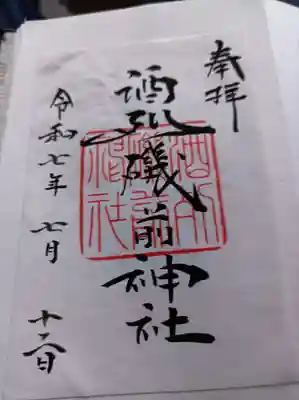 奉拝
酒列磯前神社
酒列
磯前
神社
令和七年七月十二日